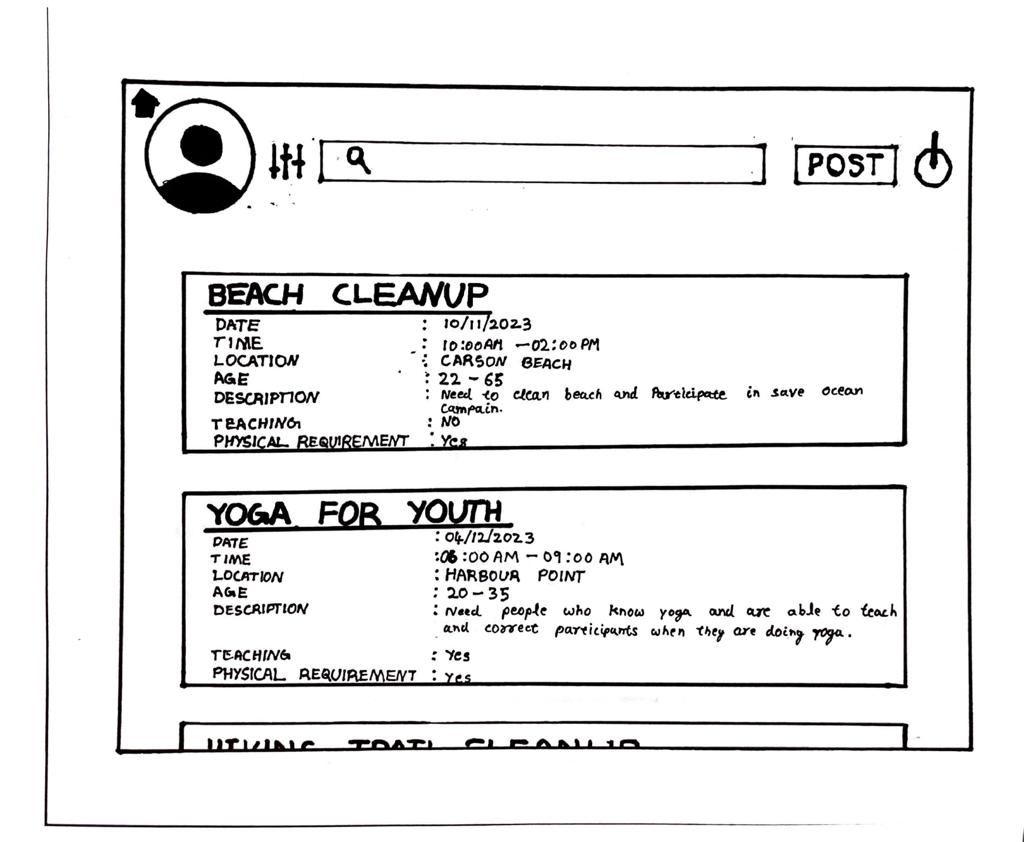 POST
BEACH CLEANUP
DATE : 10/11/2023
TIME : 10:00AM - 02:00PM
LOCATION : CARSON BEACH
AGE : 22 - 65
DESCRIPTION : Need to clean beach and Participate in save ocean
campain.
TEACHING : NO
PHYSICAL REQUIREMENT : Yes
YOGA FOR YOUTH
DATE : 04/12/2023
TIME : 06:00 AM - 09:00 AM
LOCATION : HARBOUR POINT
AGE : 20 - 35
DESCRIPTION : Need people who know yoga and are able to teach
and correct participants when they are doing yoga.
TEACHING : Yes
PHYSICAL REQUIREMENT : Yes
HIKING TRAIL CLEANUP